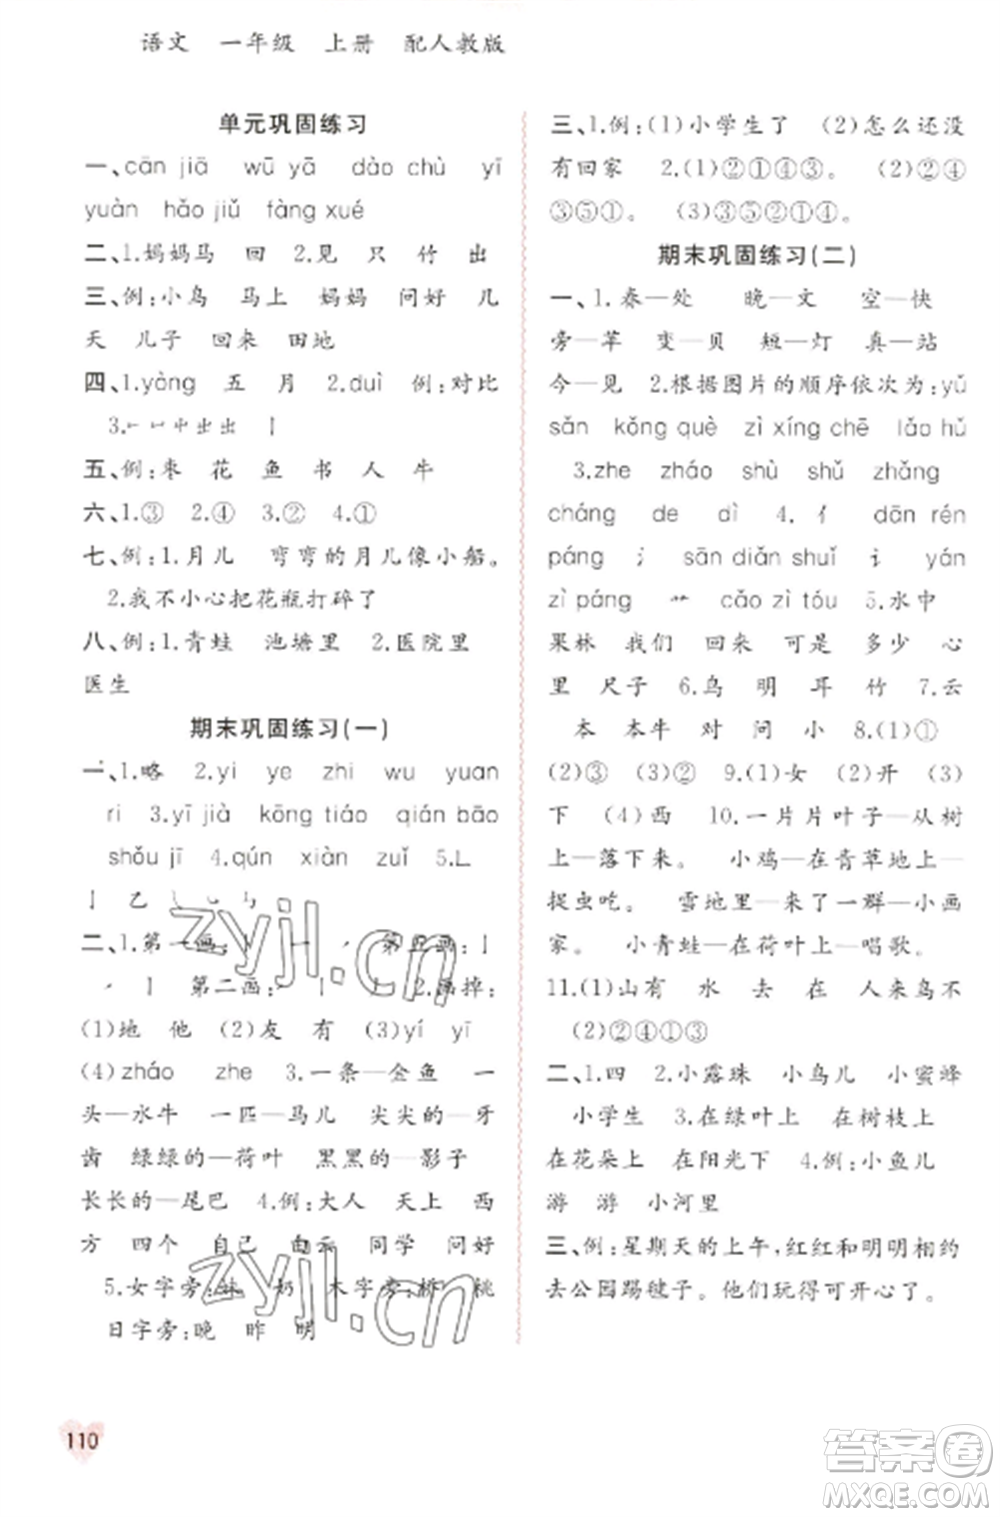 语文 一年级 上册 配人教版
单元巩固练习
一、cān jiā wū yā dào chù yī
yuàn hǎo jiǔ fàng xué
二、1.妈妈马 回 2.见 只 竹 出
三、例:小鸟 马上 妈妈 问好 几
天 儿子 回来 田地
四、1.yòng 五 月 2.duì 例:对比
五、例:枣 花 鱼 书 人 牛
六、1.③ 2.④ 3.② 4.①
七、例:1.月儿 弯弯的月儿像小船。
2.我不小心把花瓶打碎了
八、例:1.青蛙 池塘里 2.医院里
医生
期末巩固练习(一)
一、1.略 2.yi ye zhi wu yuan
ri 3.yī jià kōng tiáo qián bāo
shǒu jī 4.qún xiàn zuǐ 5.乚
亅 乙
二、1.第一画:丨
第二画: 2.画掉:
(1)地 他 (2)友 有 (3)yí yī
(4)zháo zhe 3.一条—金鱼 一
头—水牛 一匹—马儿 尖尖的—牙
齿 绿绿的—荷叶 黑黑的—影子
长长的—尾巴 4.例:大人 天上 西
方 四个 自己 白云 同学 问好
5.女字旁:妹 奶 木字旁:桥 桃
日字旁:晚 昨 明
三、1.例:(1)小学生了 (2)怎么还没
有回家 2.(1)②①③④ (2)②④
③⑤①。 (3)③⑤②①④。
期末巩固练习(二)
一、1.春—处 晚—文 空—快
旁—苹 变—贝 短—灯 真—站
今—见 2.根据图片的顺序依次为:yǔ
sǎn kǒng què zì xíng chē lǎo hǔ
3.zhe zháo shù shǔ zhǎng
cháng de dì 4.亻 dān rén
páng 氵 sān diǎn shuǐ 讠 yán
zì páng 艹 cǎo zì tóu 5.水中
果林 我们 回来 可是 多少 心
里 尺子 6.鸟 明 耳 竹 7.云
本 本牛 对 问 小 8.(1)①
(2)③ (3)② 9.(1)女 (2)开 (3)
下 (4)西 10.一片片叶子—从树
上—落下来。 小鸡—在青草地上—
捉虫吃。 雪地里—来了一群—小画
家。 小青蛙—在荷叶上—唱歌。
11.(1)山有 水 去 在 人来鸟不
(2)②④①③
二、1.四 2.小露珠 小鸟儿 小蜜蜂
小学生 3.在绿叶上 在树枝上
在花朵上 在阳光下 4.例:小鱼儿
游 游 小河里
三、例:星期天的上午,红红和明明相约
去公园踢毽子。他们玩得可开心了。
110
zyjl.cn
zyjl.cn
答案卷
MXQE.COM